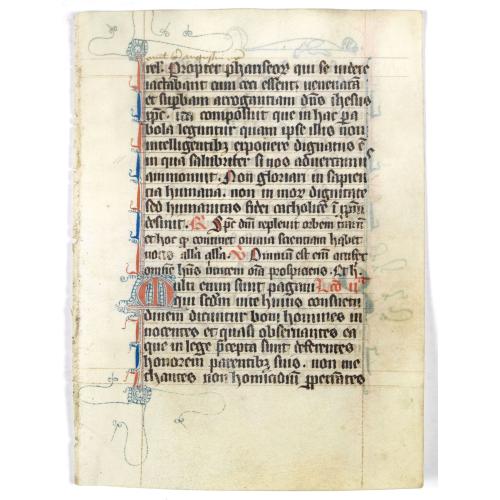 uel. Propter phariseos qui se indere
iactabant cum ceci essent. uenenatā
et supbam arrogantiam dn̄s ihesus
xp̄c. composuit que in hac pa
bola leguntur quam ipse illis non
intelligentibȝ exponere dignatus ē
in qua salubriter si nos aduertamus
ammonuit. Non gloriari in sapien
cia humana. non in mor dignitate
sed humanitas fidei catholice
desinit. R Sp̄c dn̄i repleuit orbem
et hoc qͥ continet omnia scientiam habet
uocis alla alla V Omnium est enī artifex
omnē hn̄s uirtutem oīa prospiciens.
Multi enim sunt pagani Lcō
qui scdm uite huius consuetu
dinem dicuntur boni homines in
nocentes et quasi obseruantes ea
que in lege p̄cepta sunt deferentes
honorem parentibȝ suis. non me
chantes non homicidiū